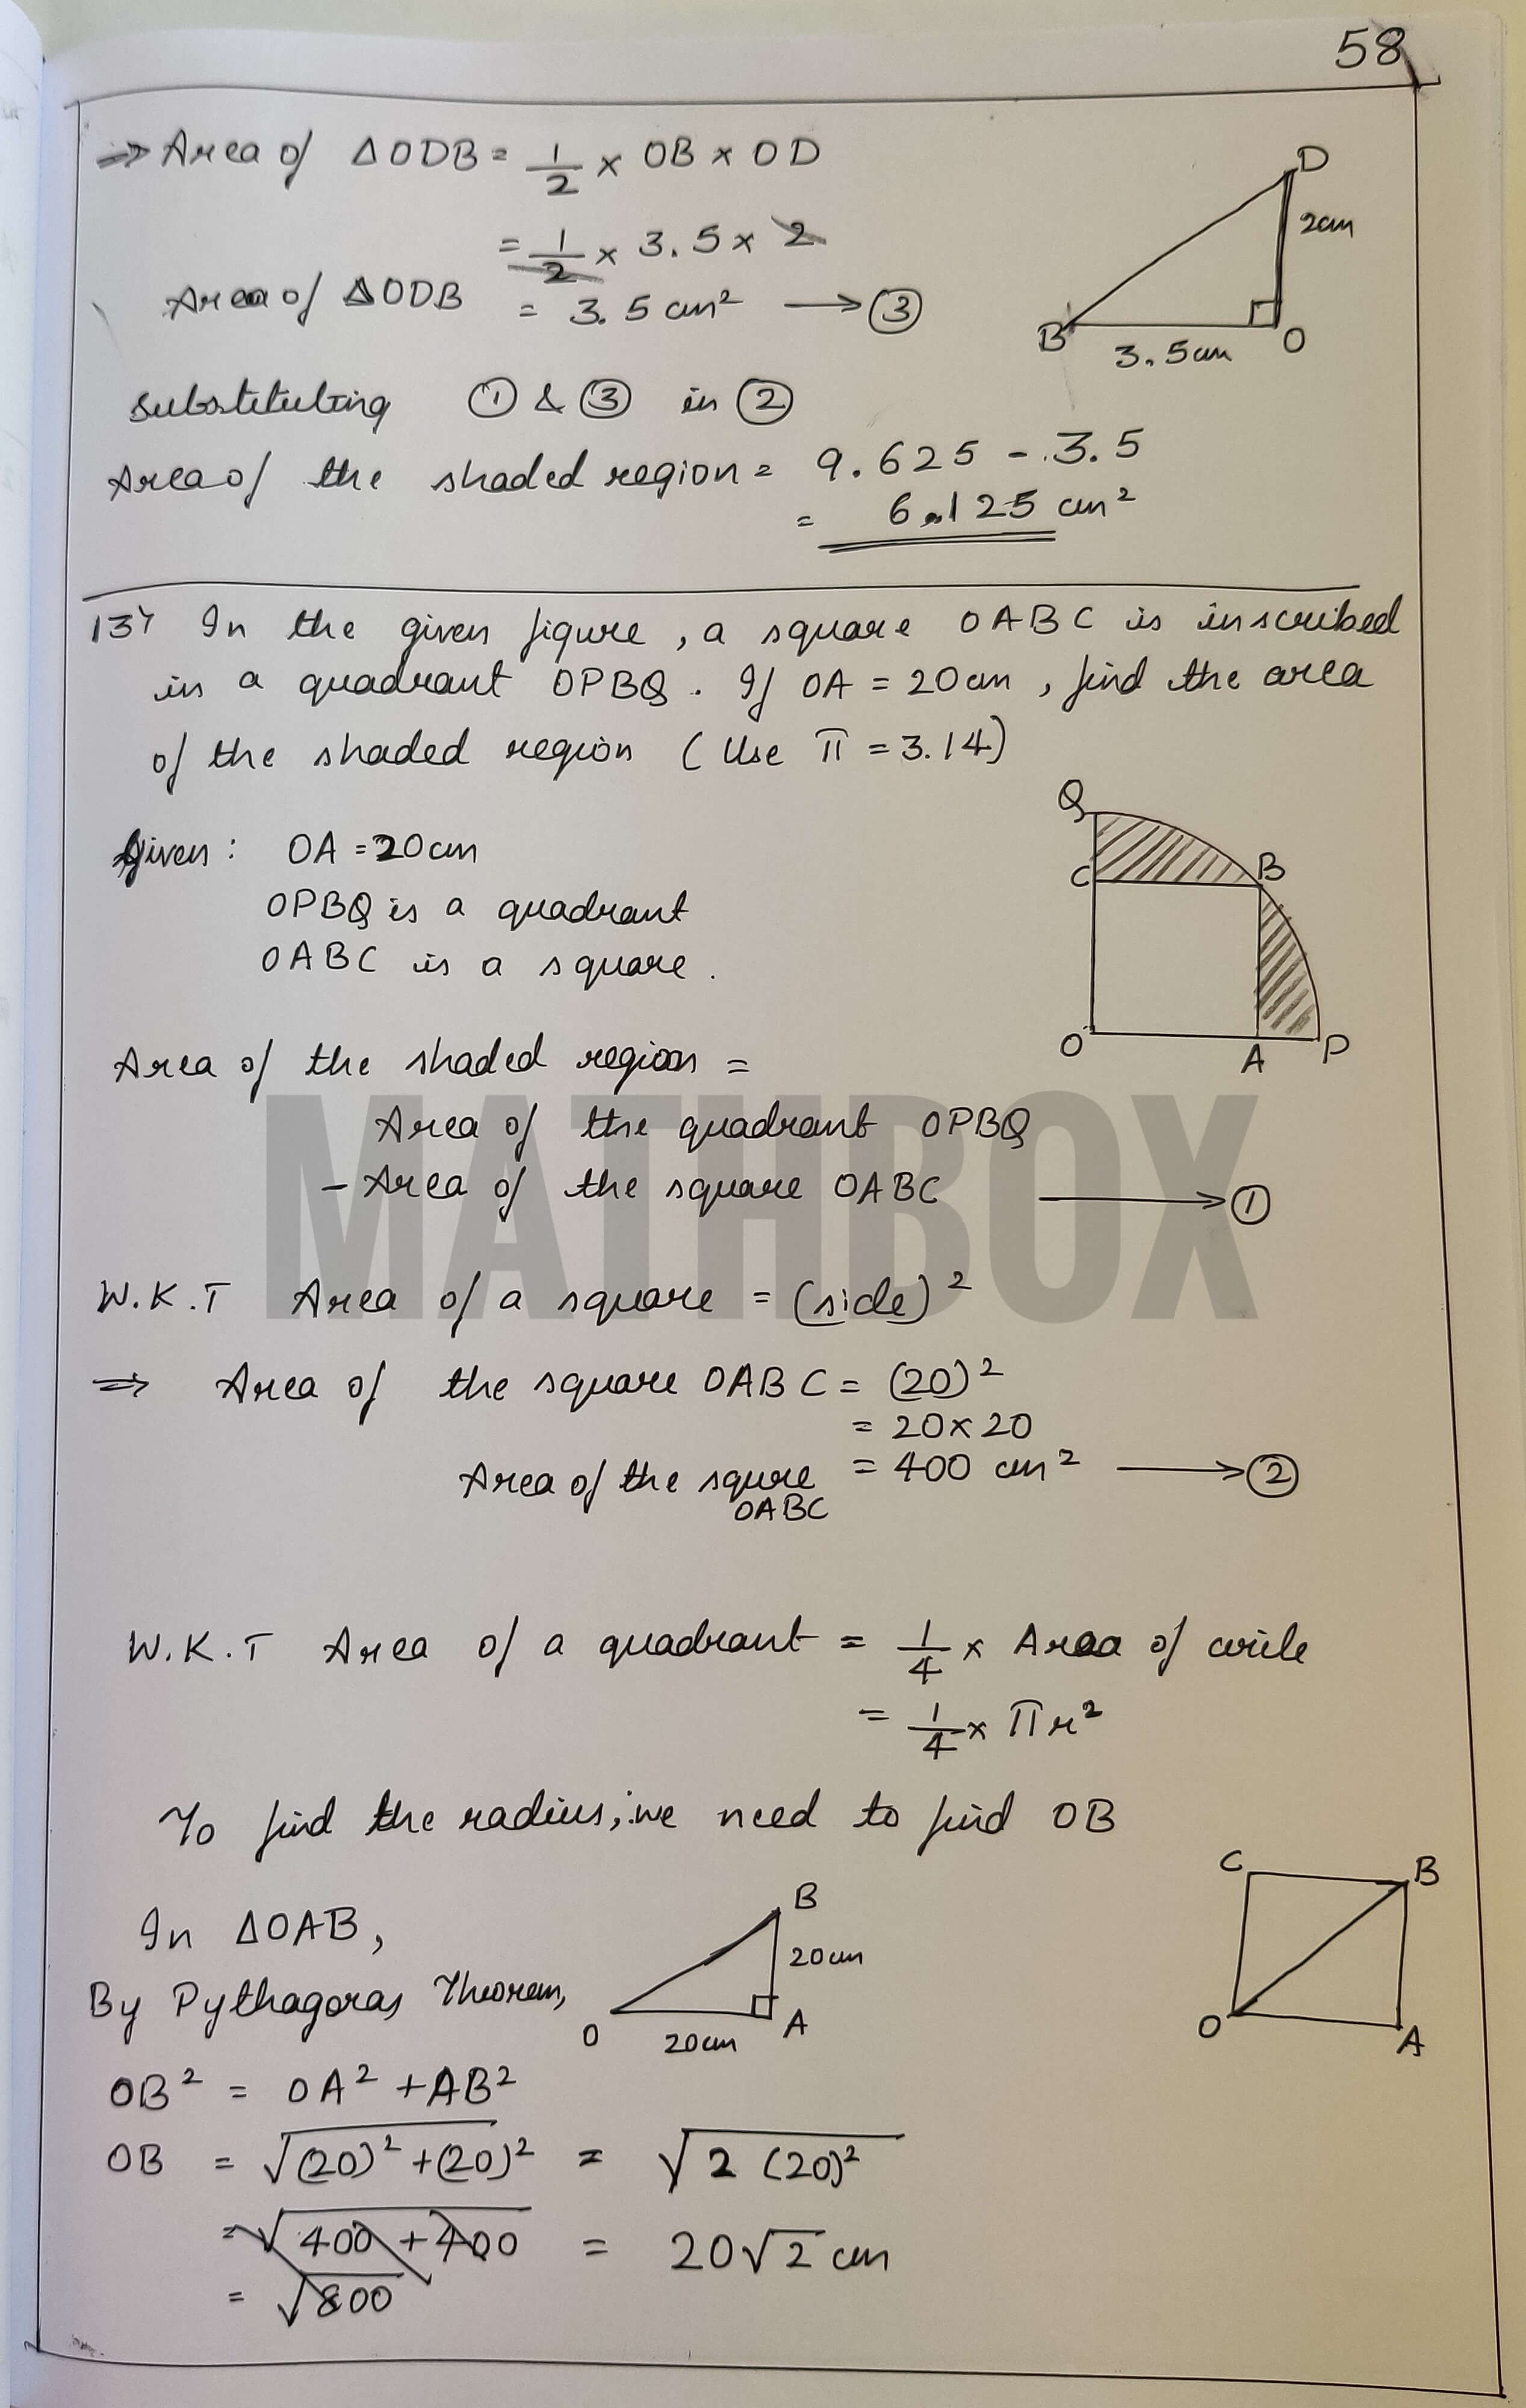 58
⇒ Area of △ODB = 1/2 × OB × OD
= 1/2 × 3.5 × 2
Area of △ODB = 3.5 cm² → ③
D
2cm
B
3.5cm
O
substituting ① & ③ in ②
Area of the shaded region = 9.625 - 3.5
= 6.125 cm²
13) In the given figure, a square OABC is inscribed
in a quadrant OPBQ. If OA = 20cm, find the area
of the shaded region (Use π = 3.14)
Given: OA = 20cm
OPBQ is a quadrant
OABC is a square.
Q
C
B
O
A
P
Area of the shaded region =
Area of the quadrant OPBQ
- Area of the square OABC → ①
MATHBOX
W.K.T Area of a square = (side)²
⇒ Area of the square OABC = (20)²
= 20×20
Area of the squre = 400 cm² → ②
OABC
W.K.T Area of a quadrant = 1/4 × Area of circle
= 1/4 × πr²
To find the radius, we need to find OB
In △OAB,
By Pythagoras Theorem,
B
20cm
O
20cm
A
C
B
O
A
OB² = OA² + AB²
OB = √(20)² + (20)² = √2 (20)²
= √400 + 400 = 20√2 cm
= √800